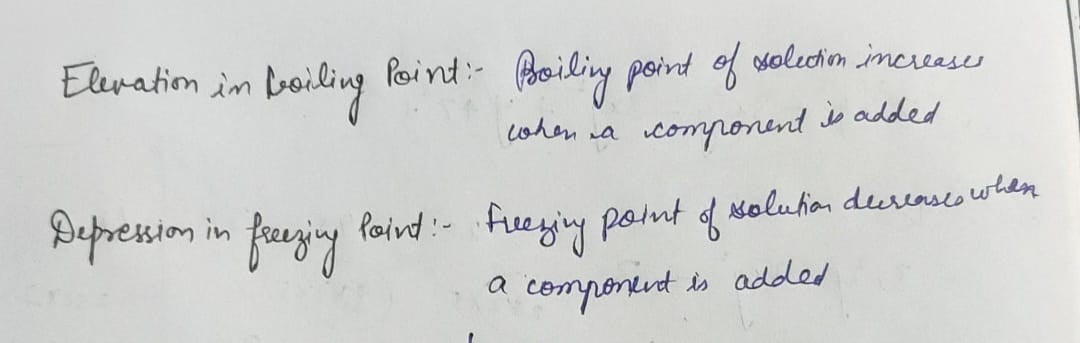 Elevation in boiling Point:- Boiling point of solution increases
when a component is added
Depression in freezing Point:- freezing point of solution decreases when
a component is added